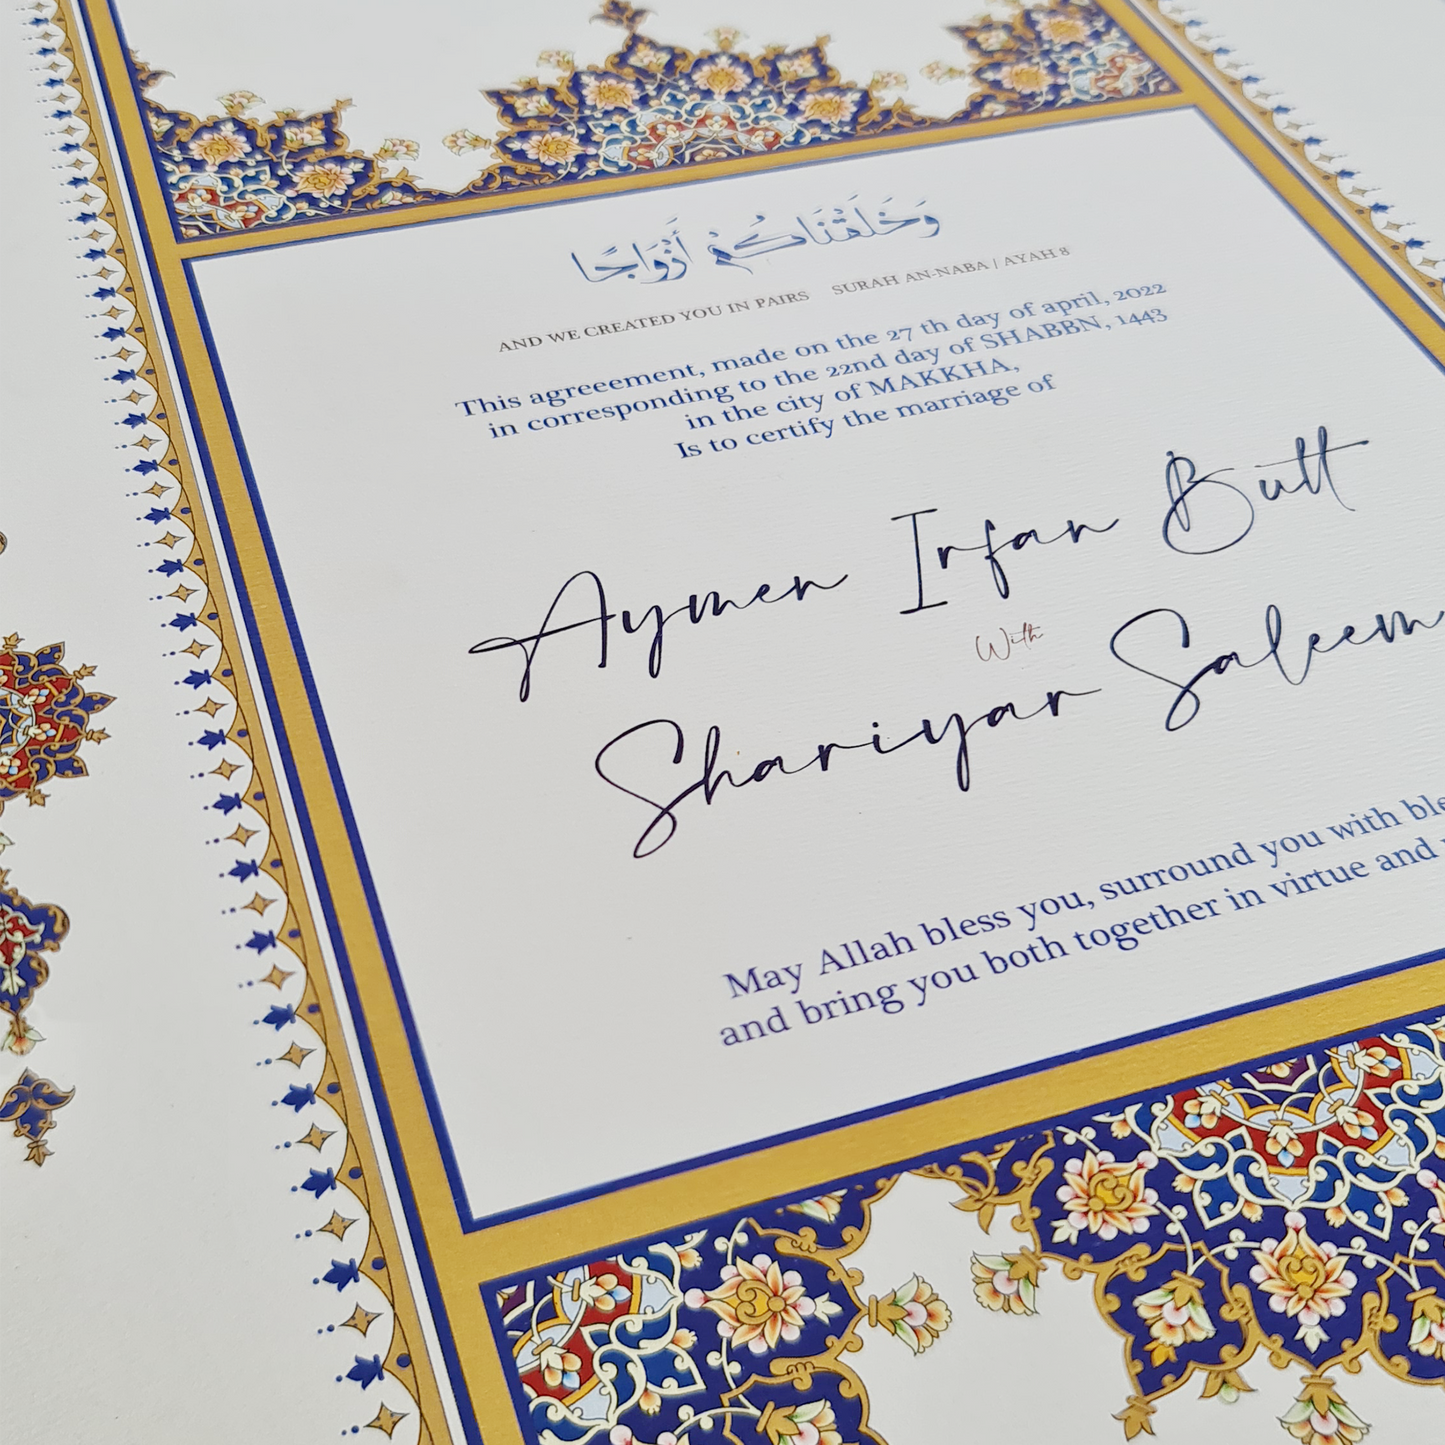 وَخَلَقْنَاكُمْ أَزْوَاجًا
AND WE CREATED YOU IN PAIRS SURAH AN-NABA | AYAH 8
This agreeement, made on the 27 th day of april, 2022
in corresponding to the 22nd day of SHABBN, 1443
in the city of MAKKHA,
Is to certify the marriage of
Aymen Irfan Butt
With
Shariyar Saleem
May Allah bless you, surround you with
and bring you both together in virtue and